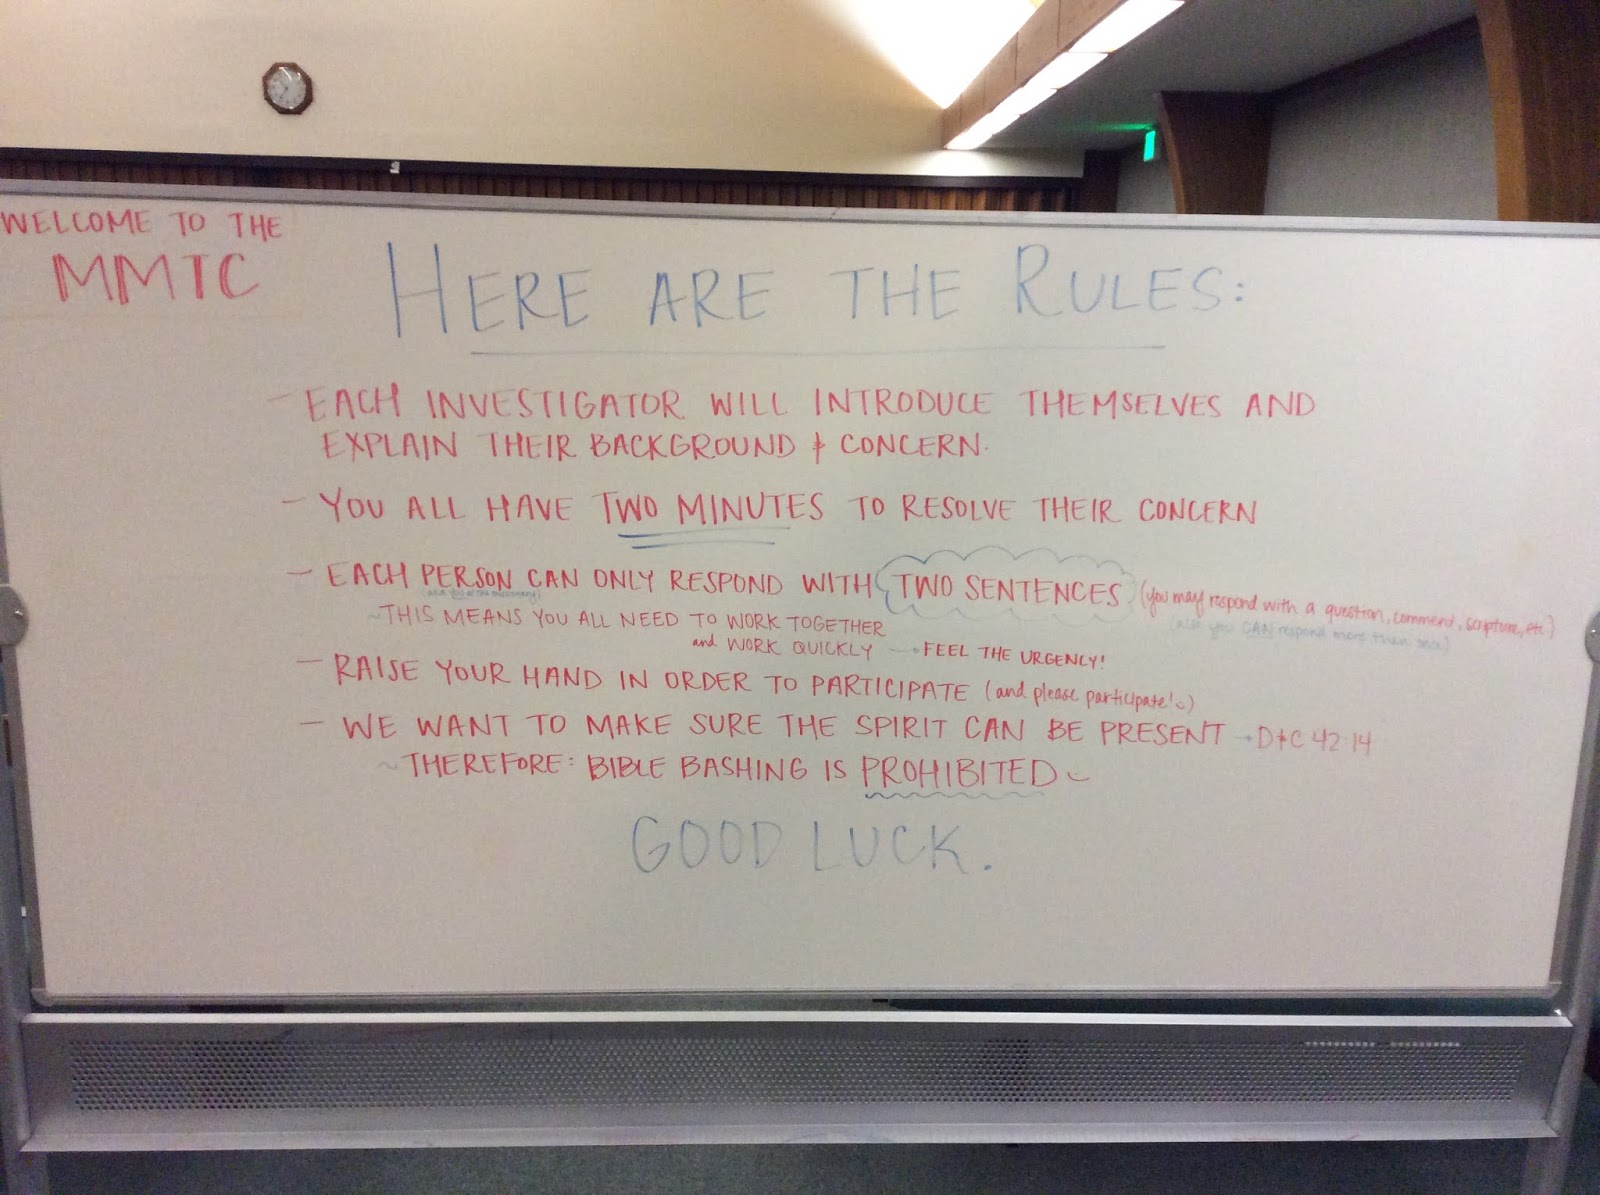 WELCOME TO THE
MMTC
HERE ARE THE RULES:
- EACH INVESTIGATOR WILL INTRODUCE THEMSELVES AND
EXPLAIN THEIR BACKGROUND & CONCERN.
- YOU ALL HAVE TWO MINUTES TO RESOLVE THEIR CONCERN
- EACH PERSON CAN ONLY RESPOND WITH TWO SENTENCES (you may respond with a question, comment, scripture, etc)
(also you CAN respond more than once)
~THIS MEANS YOU ALL NEED TO WORK TOGETHER
and WORK QUICKLY → FEEL THE URGENCY!
- RAISE YOUR HAND IN ORDER TO PARTICIPATE (and please participate! )
- WE WANT TO MAKE SURE THE SPIRIT CAN BE PRESENT → D&C 42:14
~THEREFORE: BIBLE BASHING IS PROHIBITED
GOOD LUCK.